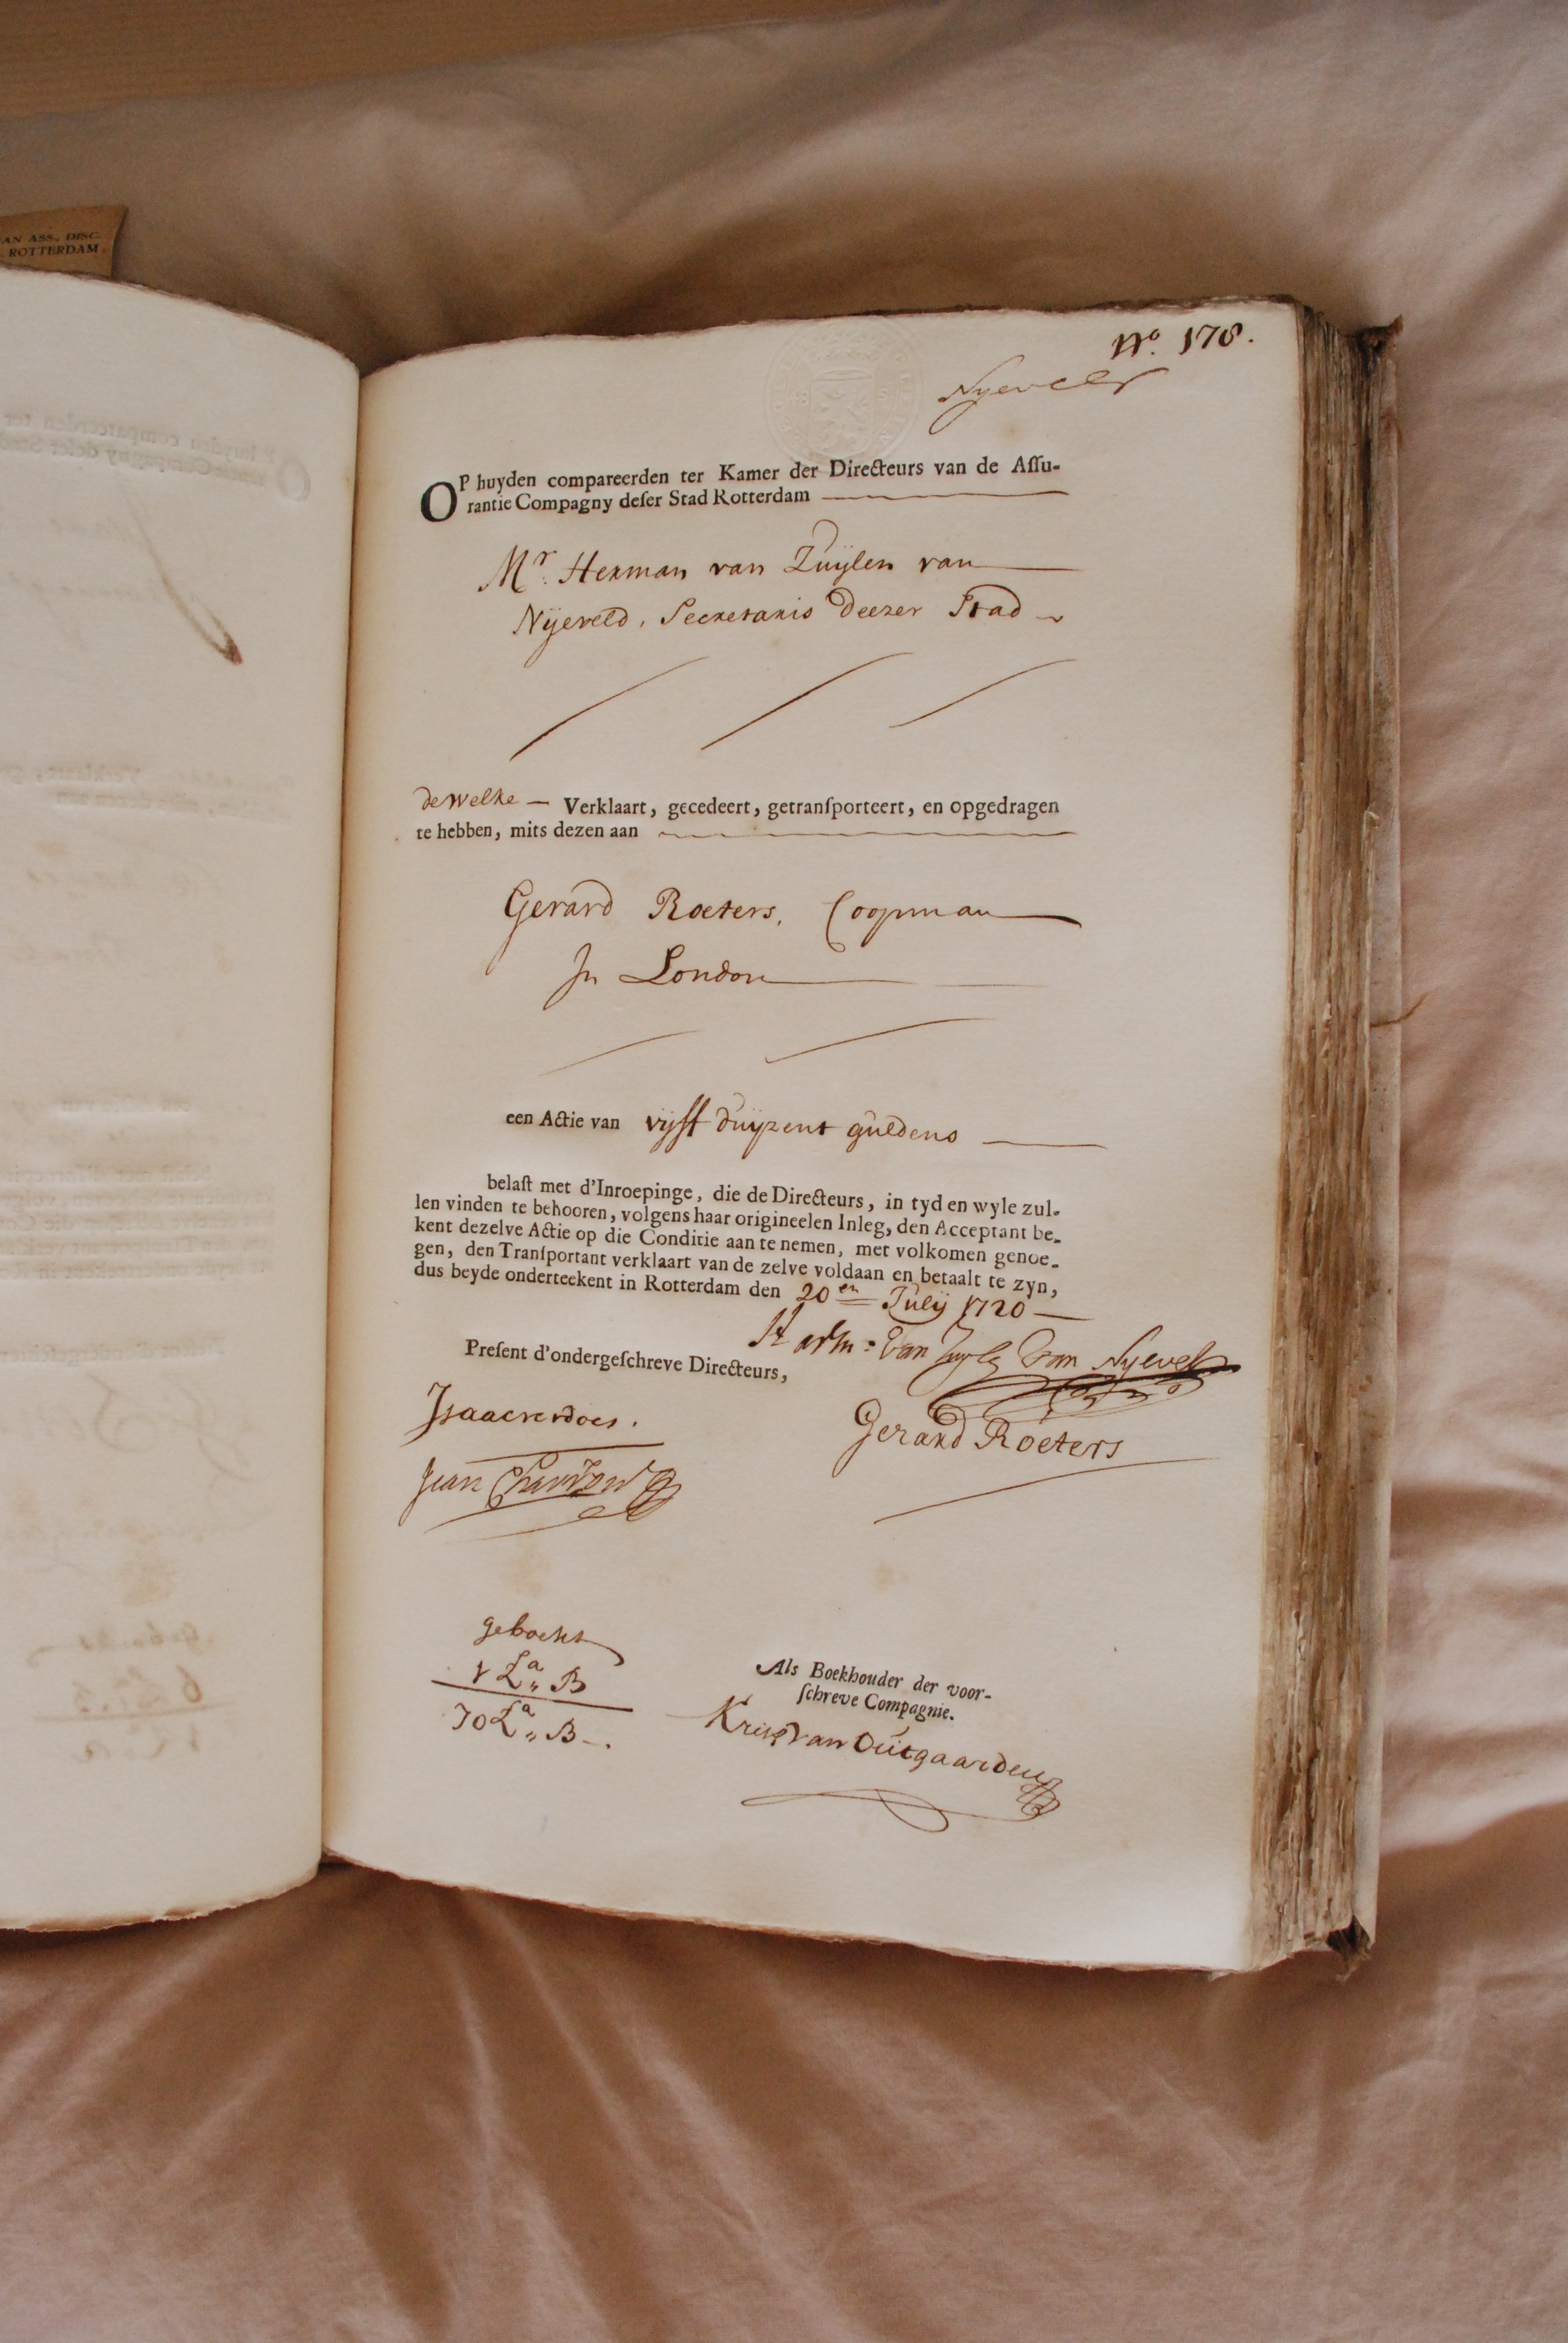 AN ASS., DISC.
ROTTERDAM.
No. 178.
Nyevelt
OP huyden compareerden ter Kamer der Directeurs van de Assu-
rantie Compagny deser Stad Rotterdam
Mr. Herman van Zuylen van
Nyeveld, Secretaris deezer Stad
dewelke Verklaart, gecedeert, getransporteert, en opgedragen
te hebben, mits dezen aan
Gerard Roeters, Coopman
In London
een Actie van vyff duyzent guldens
belast met d'Inroepinge, die de Directeurs, in tyd en wyle zul-
len vinden te behooren, volgens haar origineelen Inleg, den Acceptant be-
kent dezelve Actie op die Conditie aan te nemen, met volkomen genoe-
gen, den Transportant verklaart van de zelve voldaan en betaalt te zyn,
dus beyde onderteekent in Rotterdam den 20en July 1720
Harm: van Zuyle van Nyevelt
Present d'ondergeschreve Directeurs,
Gerard Roeters
Jean
geboekt
1 La B
70 La B
Als Boekhouder der voor-
schreve Compagnie.
Kris van Outgaarden